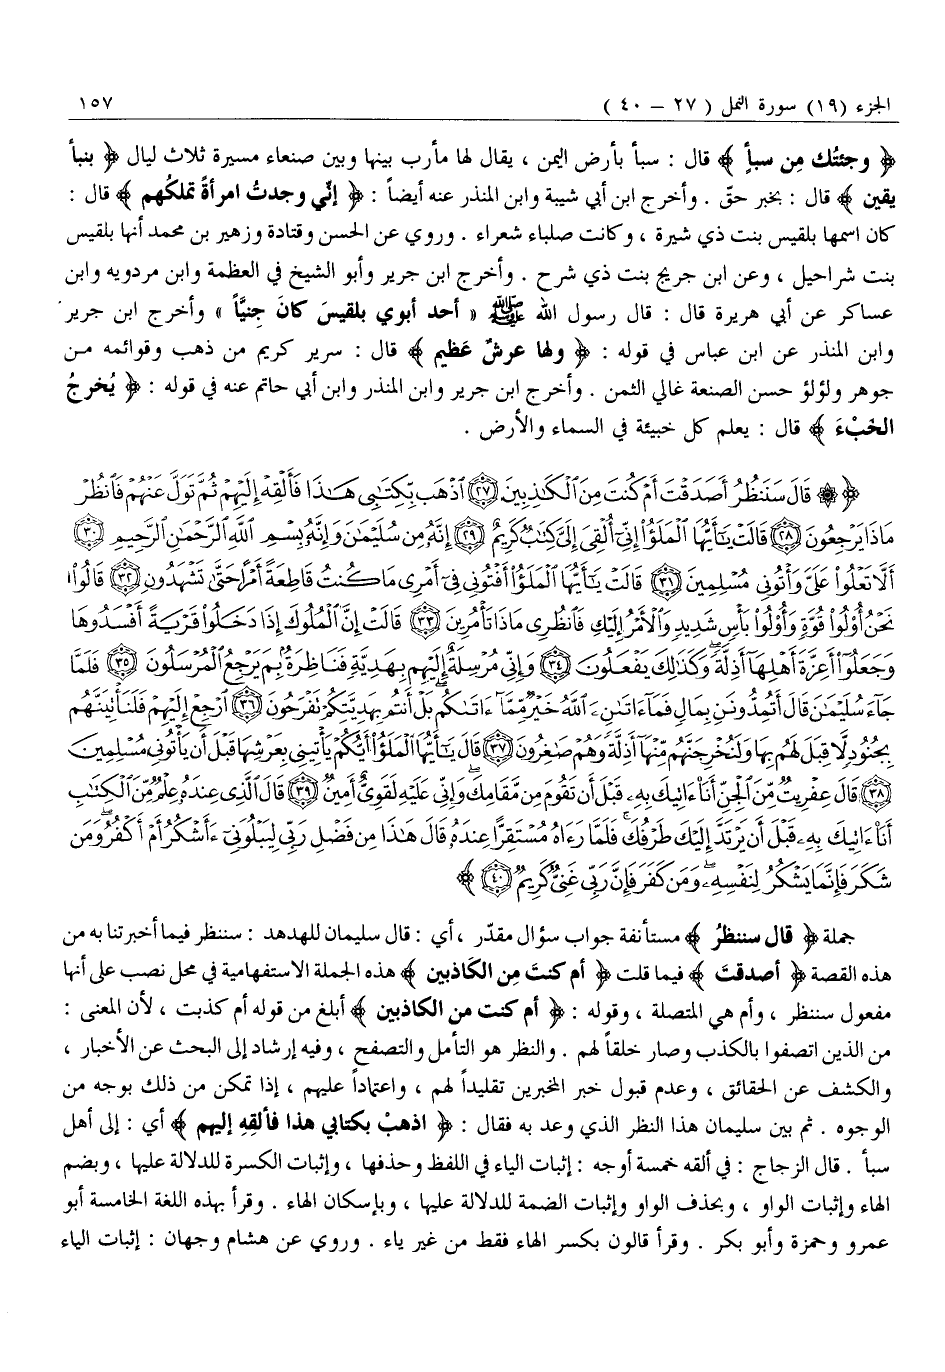 الجزء (١٩) سورة النمل ( ٢٧ – ٤٠ ) ١٥٧
﴿ وجئتُك مِن سبأٍ ﴾ قال : سبأ بأرض اليمن ، يقال لها مأرب بينها وبين صنعاء مسيرة ثلاث ليال ﴿ بنبأ
يقين ﴾ قال : بخبر حقّ . وأخرج ابن أبي شيبة وابن المنذر عنه أيضاً : ﴿ إنّي وجدتُ امرأةً تملكُهم ﴾ قال :
كان اسمها بلقيس بنت ذي شيرة ، وكانت صلباء شعراء . وروي عن الحسن وقتادة وزهير بن محمد أنها بلقيس
بنت شراحيل ، وعن ابن جريج بنت ذي شرح . وأخرج ابن جرير وأبو الشيخ في العظمة وابن مردويه وابن
عساكر عن أبي هريرة قال : قال رسول الله ﷺ « أحد أبوي بلقيسَ كانَ جِنيَّاً » وأخرج ابن جرير
وابن المنذر عن ابن عباس في قوله : ﴿ ولها عرشٌ عَظيم ﴾ قال : سرير كريم من ذهب وقوائمه مـن
جوهر ولؤلؤ حسن الصنعة غالي الثمن . وأخرج ابن جرير وابن المنذر وابن أبي حاتم عنه في قوله : ﴿ يُخرجُ
الخَبْءَ ﴾ قال : يعلم كل خبيئة في السماء والأرض .
﴿ ۞ قَالَ سَنَنظُرُ أَصَدَقْتَ أَمْ كُنتَ مِنَ ٱلْكَـٰذِبِينَ ﴿٢٧﴾ ٱذْهَب بِّكِتَـٰبِى هَـٰذَا فَأَلْقِهْ إِلَيْهِمْ ثُمَّ تَوَلَّ عَنْهُمْ فَٱنظُرْ
مَاذَا يَرْجِعُونَ ﴿٢٨﴾ قَالَتْ يَـٰٓأَيُّهَا ٱلْمَلَؤُا۟ إِنِّىٓ أُلْقِىَ إِلَىَّ كِتَـٰبٌ كَرِيمٌ ﴿٢٩﴾ إِنَّهُۥ مِن سُلَيْمَـٰنَ وَإِنَّهُۥ بِسْمِ ٱللَّهِ ٱلرَّحْمَـٰنِ ٱلرَّحِيمِ ﴿٣٠﴾
أَلَّا تَعْلُوا۟ عَلَىَّ وَأْتُونِى مُسْلِمِينَ ﴿٣١﴾ قَالَتْ يَـٰٓأَيُّهَا ٱلْمَلَؤُا۟ أَفْتُونِى فِىٓ أَمْرِى مَا كُنتُ قَاطِعَةً أَمْرًا حَتَّىٰ تَشْهَدُونِ ﴿٣٢﴾ قَالُوا۟
نَحْنُ أُو۟لُوا۟ قُوَّةٍ وَأُو۟لُوا۟ بَأْسٍ شَدِيدٍ وَٱلْأَمْرُ إِلَيْكِ فَٱنظُرِى مَاذَا تَأْمُرِينَ ﴿٣٣﴾ قَالَتْ إِنَّ ٱلْمُلُوكَ إِذَا دَخَلُوا۟ قَرْيَةً أَفْسَدُوهَا
وَجَعَلُوٓا۟ أَعِزَّةَ أَهْلِهَآ أَذِلَّةً ۖ وَكَذَٰلِكَ يَفْعَلُونَ ﴿٣٤﴾ وَإِنِّى مُرْسِلَةٌ إِلَيْهِم بِهَدِيَّةٍ فَنَاظِرَةٌۢ بِمَ يَرْجِعُ ٱلْمُرْسَلُونَ ﴿٣٥﴾ فَلَمَّا
جَآءَ سُلَيْمَـٰنَ قَالَ أَتُمِدُّونَنِ بِمَالٍ فَمَآ ءَاتَىٰنِۦَ ٱللَّهُ خَيْرٌ مِّمَّآ ءَاتَىٰكُم بَلْ أَنتُم بِهَدِيَّتِكُمْ تَفْرَحُونَ ﴿٣٦﴾ ٱرْجِعْ إِلَيْهِمْ فَلَنَأْتِيَنَّهُم
بِجُنُودٍ لَّا قِبَلَ لَهُم بِهَا وَلَنُخْرِجَنَّهُم مِّنْهَآ أَذِلَّةً وَهُمْ صَـٰغِرُونَ ﴿٣٧﴾ قَالَ يَـٰٓأَيُّهَا ٱلْمَلَؤُا۟ أَيُّكُمْ يَأْتِينِى بِعَرْشِهَا قَبْلَ أَن يَأْتُونِى مُسْلِمِينَ
﴿٣٨﴾ قَالَ عِفْرِيتٌ مِّنَ ٱلْجِنِّ أَنَا۠ ءَاتِيكَ بِهِۦ قَبْلَ أَن تَقُومَ مِن مَّقَامِكَ ۖ وَإِنِّى عَلَيْهِ لَقَوِىٌّ أَمِينٌ ﴿٣٩﴾ قَالَ ٱلَّذِى عِندَهُۥ عِلْمٌ مِّنَ ٱلْكِتَـٰبِ
أَنَا۠ ءَاتِيكَ بِهِۦ قَبْلَ أَن يَرْتَدَّ إِلَيْكَ طَرْفُكَ ۚ فَلَمَّا رَءَاهُ مُسْتَقِرًّا عِندَهُۥ قَالَ هَـٰذَا مِن فَضْلِ رَبِّى لِيَبْلُوَنِىٓ ءَأَشْكُرُ أَمْ أَكْفُرُ ۖ وَمَن
شَكَرَ فَإِنَّمَا يَشْكُرُ لِنَفْسِهِۦ ۖ وَمَن كَفَرَ فَإِنَّ رَبِّى غَنِىٌّ كَرِيمٌ ﴿٤٠﴾ ﴾
جملة ﴿ قال سننظرُ ﴾ مستأنفة جواب سؤال مقدّر ، أي : قال سليمان للهدهد : سننظر فيما أخبرتنا به من
هذه القصة ﴿ أصدقتَ ﴾ فيما قلت ﴿ أم كنتَ مِن الكَاذبين ﴾ هذه الجملة الاستفهامية في محل نصب على أنها
مفعول سننظر ، وأم هي المتصلة ، وقوله : ﴿ أم كنت من الكاذبين ﴾ أبلغ من قوله أم كذبت ، لأن المعنى :
من الذين اتصفوا بالكذب وصار خلقاً لهم . والنظر هو التأمل والتصفح ، وفيه إرشاد إلى البحث عن الأخبار ،
والكشف عن الحقائق ، وعدم قبول خبر المخبرين تقليداً لهم ، واعتماداً عليهم ، إذا تمكن من ذلك بوجه من
الوجوه . ثم بين سليمان هذا النظر الذي وعد به فقال : ﴿ اذهبْ بكتابي هذا فألقِهِ إليهم ﴾ أي : إلى أهل
سبأ . قال الزجاج : في ألقه خمسة أوجه : إثبات الياء في اللفظ وحذفها ، وإثبات الكسرة للدلالة عليها ، وبضم
الهاء وإثبات الواو ، وبحذف الواو وإثبات الضمة للدلالة عليها ، وبإسكان الهاء . وقرأ بهذه اللغة الخامسة أبو
عمرو وحمزة وأبو بكر . وقرأ قالون بكسر الهاء فقط من غير ياء . وروي عن هشام وجهان : إثبات الياء